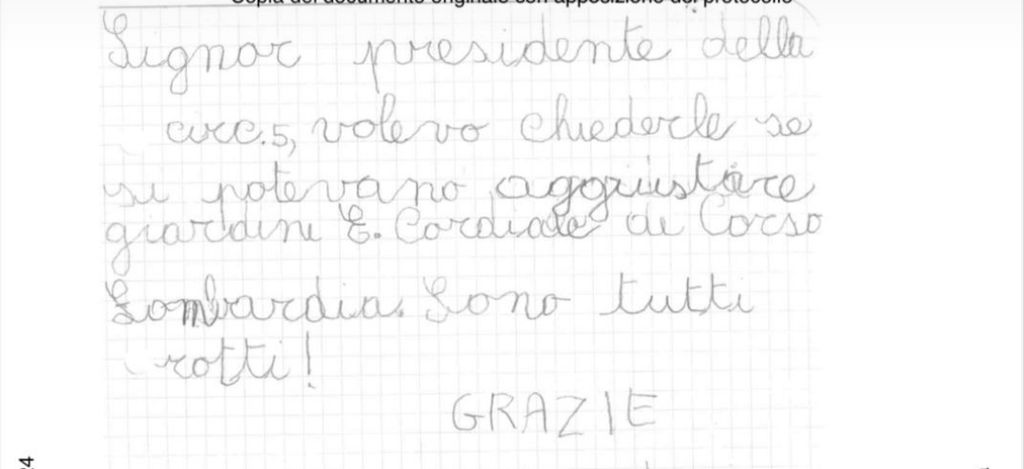 Copia del documento originale con apposizione del protocollo
Signor presidente della
circ.5, volevo chiederle se
si potevano aggiustare
giardini E. Cordiale di Corso
Lombardia. Sono tutti
rotti!
GRAZIE